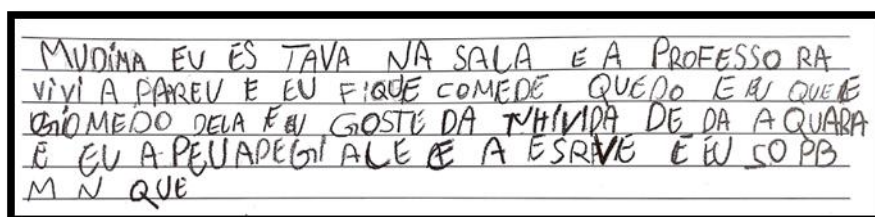 MUDIMA EU ES TAVA NA SALA E A PROFESSO RA
VIVI A PAREU E EU FIQUE COMEDE QUEDO E EU QUE E
MEDO DELA E EU GOSTE DA DE DA A QUARA
E EU A PEU APEGI ALE E A ESRVE E EU SO PB
M N QUE